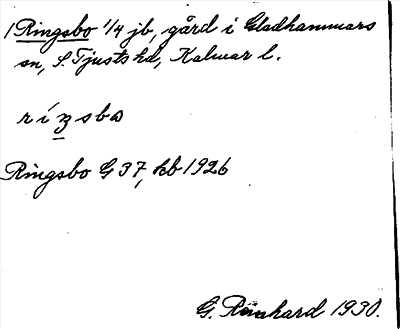 1 Ringsbo 1/4 jb, gård i Gladhammars
sn, S. Tjusts hd, Kalmar l.
Ringsbo G 37, kb 1926
G. Rinhard 1930.